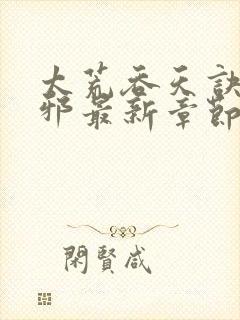 大荒吞天訣
邪最新章節
閑賢咸